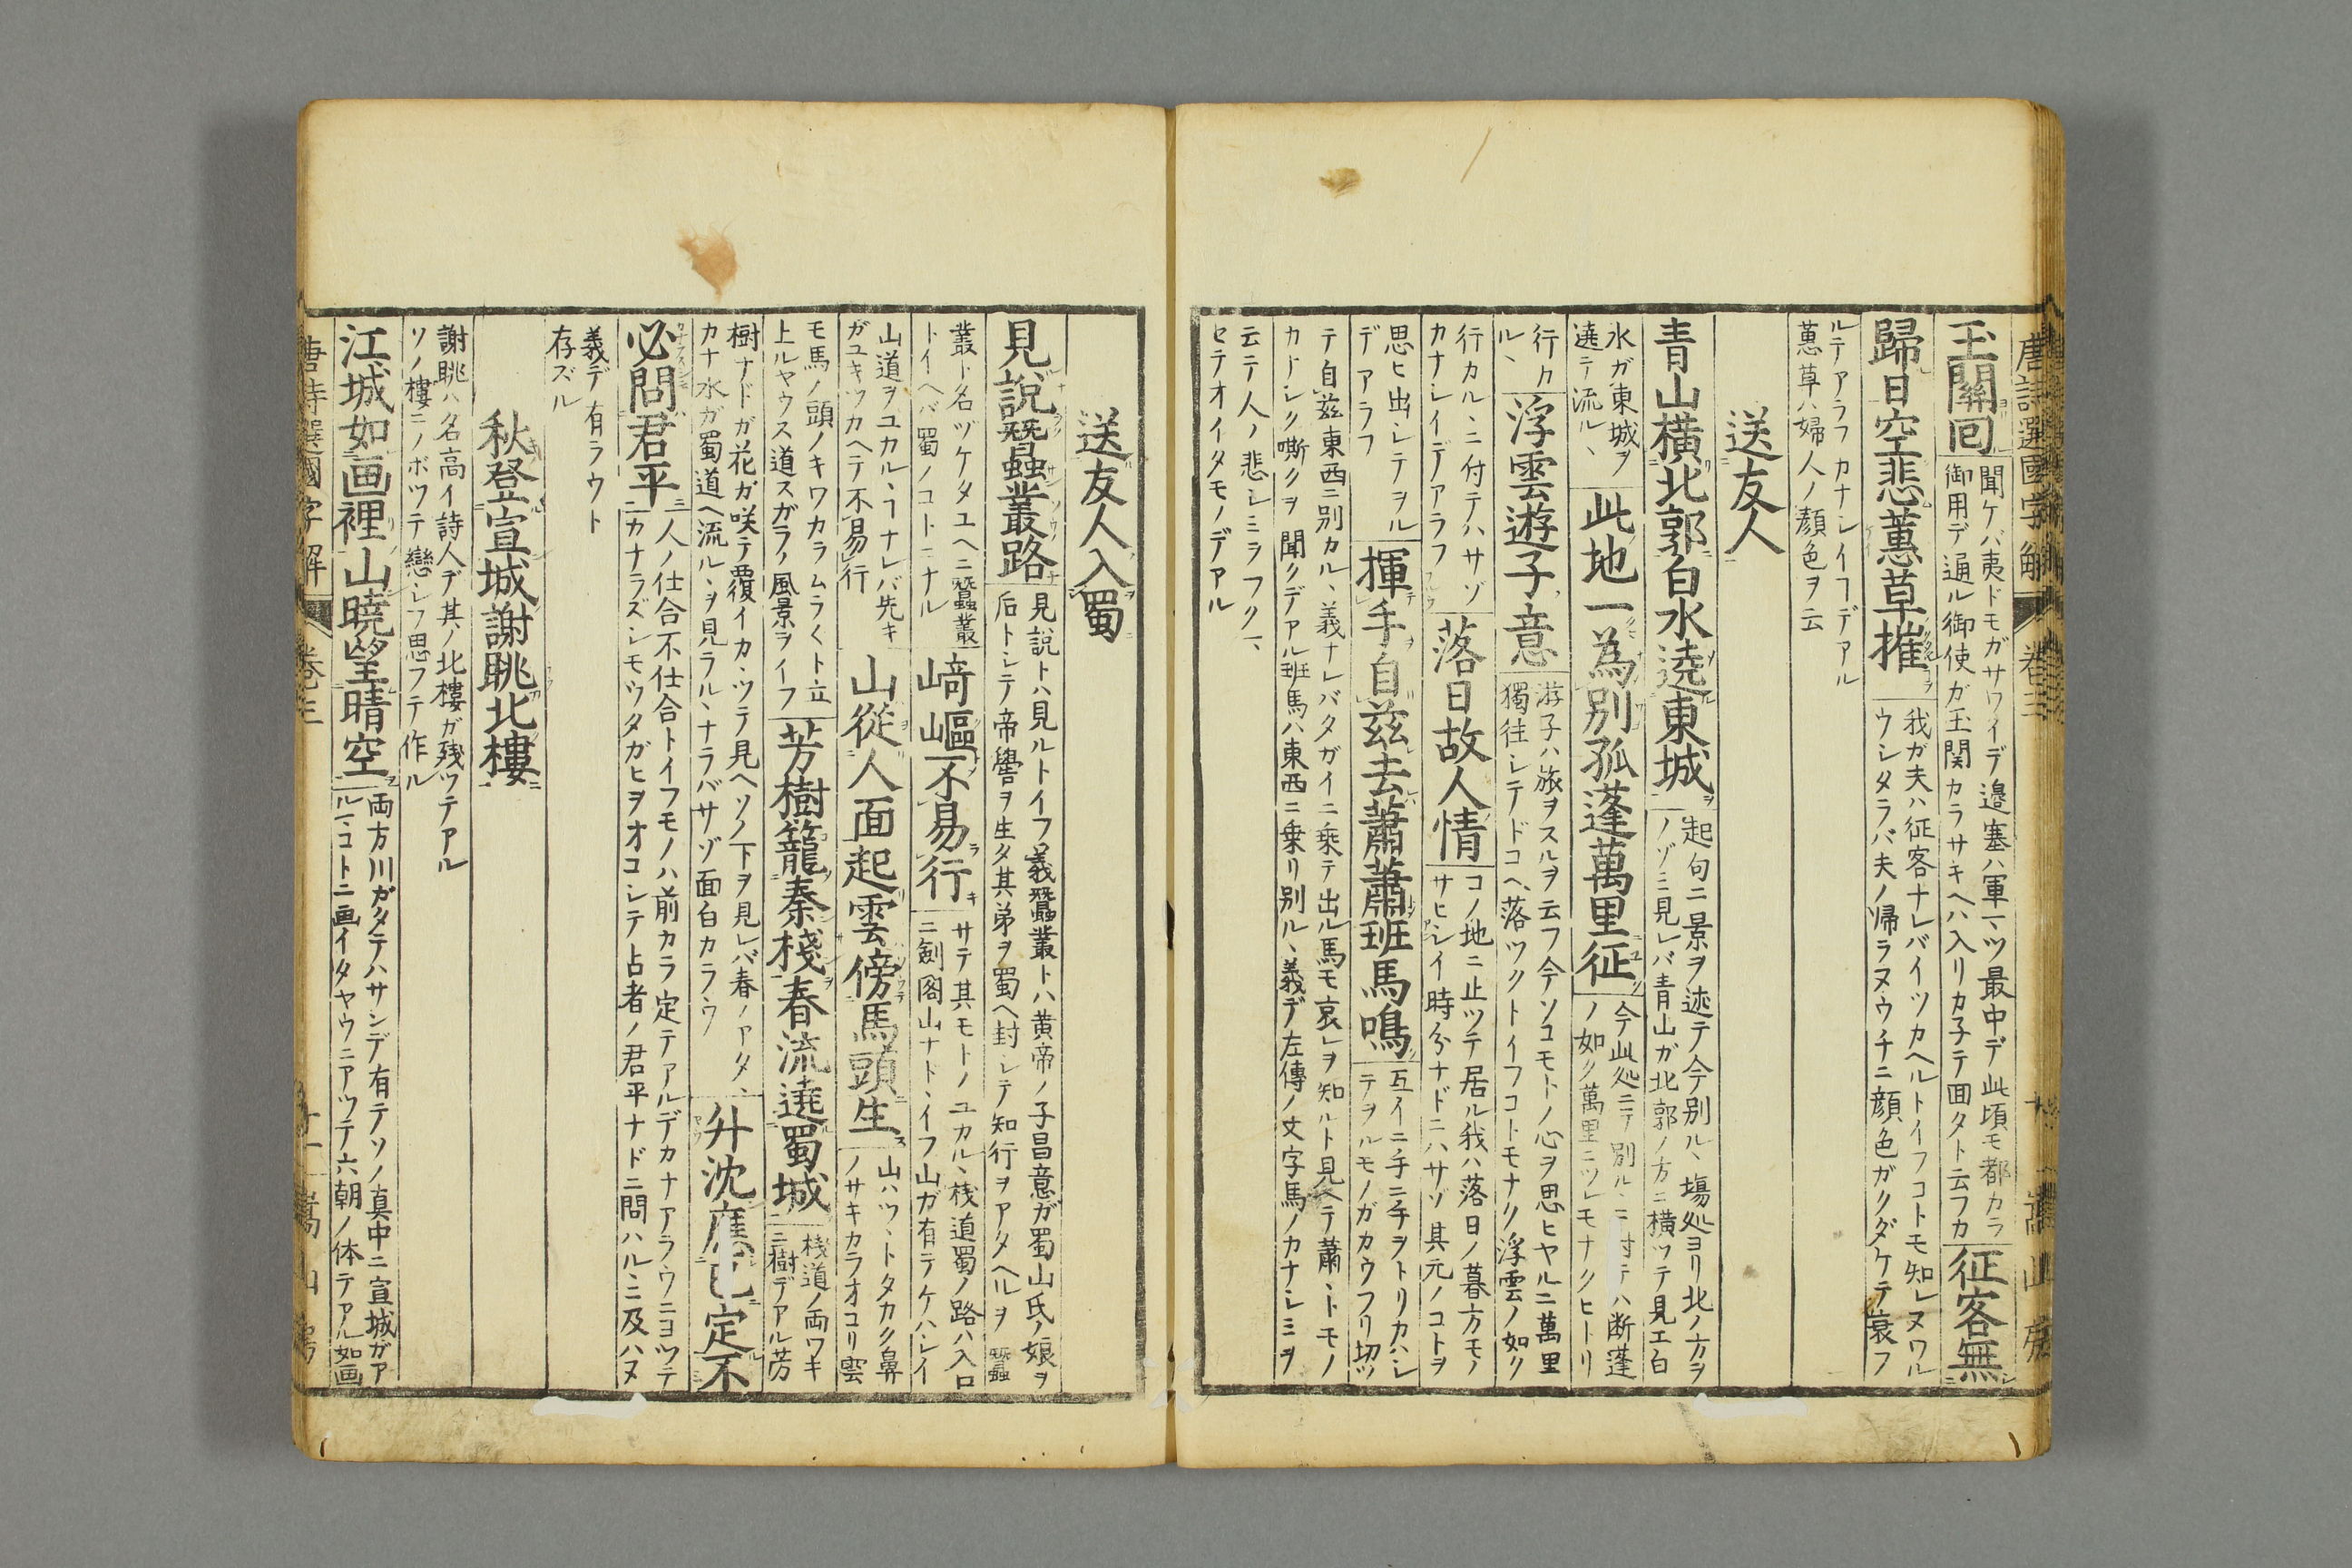 唐詩選國字解 卷三 嵩山房
玉關回 聞ケバ夷ドモガサワイデ邉塞ハ軍マツ最中デ此頃モ都カラ
御用デ通ル御使ガ玉関カラサキヘハ入リカ子テ囬タト云フカ 征客無
歸日空悲蕙草摧 我ガ夫ハ征客ナレバイツカヘルトイフコトモ知レヌワル
ウシタラバ夫ノ帰ラヌウチニ顔色ガクダケテ衰フ
ルテアラフカナシイフデアル
蕙草ハ婦人ノ顏色ヲ云
送友人
青山横北郭白水遶東城 起句ニ景ヲ述テ今別ルヽ塲処ヨリ北ノ方ヲ
ノゾミ見レバ青山ガ北郭ノ方ニ横ツテ見エ白
水ガ東城ヲ
遶テ流ルヽ 此地一為別孤蓬萬里征 今此処ニテ別ルヽニ付テハ断蓬
ノ如ク萬里ニツレモナクヒトリ
行カ
ルヽ 浮雲遊子意 游子ハ旅ヲスルヲ云フ今ソコモトノ心ヲ思ヒヤルニ萬里
獨往シテドコヘ落ツクトイフコトモナク浮雲ノ如ク
行カルヽニ付テハサゾ
カナシイデアラフ 落日故人情 コノ地ニ止ツテ居ル我ハ落日ノ暮方モノ
サヒシイ時分ナドニハサゾ其元ノコトヲ
思ヒ出シテヲル
デアラフ 揮手自茲去蕭蕭班馬鳴 互イニ手ニ手ヲトリカハシ
テヲルモノガカウフリ切ツ
テ自茲東西ニ別カルヽ義ナレバタガイニ乗テ出ル馬モ哀レヲ知ルト見ヘテ蕭ヽトモノ
カナシク嘶クヲ聞クデアル班馬ハ東西ニ乗リ別ルヽ義デ左傳ノ文字馬ノカナシミヲ
云テ人ノ悲シミヲフクマ
セテオイタモノデアル
送友人入蜀
見說蠶叢路 見説トハ見ルトイフ義蠶叢トハ黄帝ノ子昌意ガ蜀山氏ノ娘ヲ
后トシテ帝嚳ヲ生タ其弟ヲ蜀ヘ封シテ知行ヲアタヘルヲ蠶
叢ト名ヅケタユヘニ蠶叢
トイヘバ蜀ノコトニナル 崎嶇不易行 サテ其モトノユカルヽ桟道蜀ノ路ハ入口
ニ劔閣山ナトヽイフ山ガ有テケハシイ
山道ヲユカルヽフナレバ先キ
ガユキツカヘテ不易行 山從人面起雲傍馬頭生 山ハツヽトタカク鼻
ノサキカラオコリ雲
モ馬ノ頭ノキワカラムラ〳〵ト立
上ルヤウス道スガラノ風景ヲイフ 芳樹籠秦棧春流遶蜀城 桟道ノ両ワキ
ニ樹デアル芳
樹ナドガ花ガ咲テ覆イカヽツテ見ヘソノ下ヲ見レバ春ノアタヽ
カナ水ガ蜀道ヘ流ルヽヲ見ラルヽナラバサゾ面白カラウ 升沈應已定不
必問君平 人ノ仕合不仕合トイフモノハ前カラ定テアルデカナアラウニヨツテ
カナラズシモウタガヒヲオコシテ占者ノ君平ナドニ問ハルヽニ及ハヌ
義デ有ラウト
存ズル
秋登宣城謝眺北樓
謝眺ハ名高イ詩人デ其ノ北樓ガ残ツテアル
ソノ樓ニノボツテ戀シフ思フテ作ル
江城如画裡山曉望晴空 両方川ガタテハサンデ有テソノ真中ニ宣城ガア
ルマヽコトニ画イタヤウニアツテ六朝ノ体テアル如画
唐詩選國字解 卷三 十一 嵩山房